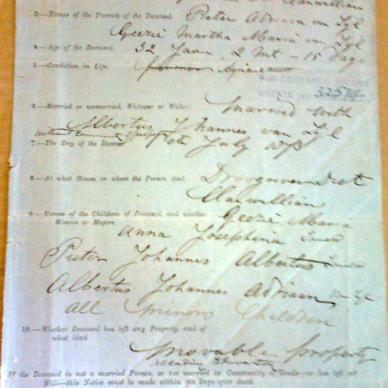 Clanwilliam
3.—Names of the Parents of the Deceased, Pieter Adriaan van Zyl
Geezi Martha Maria van Zyl
4.—Age of the Deceased, 32 Jaar, 2 Mnt - 15 Dag
5.—Condition in Life,
ESTATE
6.—Married or unmarried, Widower or Widow, Married with
Albertus Johannes van Zyl
7.—The Day of the Decease, July 1878
8.—At what House, or where the Person died,
Clanwilliam
9.—Names of the Children of Deceased, and whether Geezi Maria
Minors or Majors, Anna Josephina
Pieter Johannes Albertus
Albertus Johannes Adriaan
all minors Children
10.—Whether Deceased has left any Property, and of
what kind
Movable property
If the Deceased is not a married Person, or not married in Community of Goods—or has left no
Will—this Notice must be made within Six Days after death